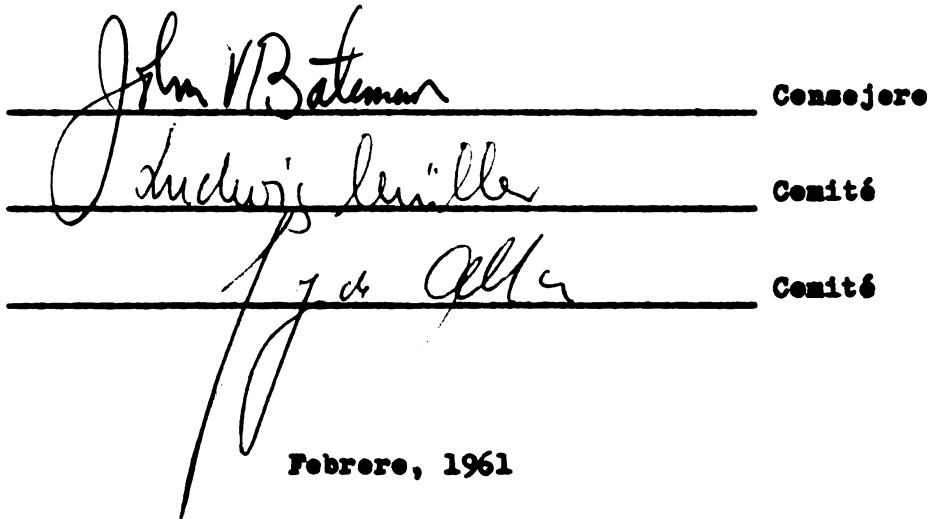 John V Bateman Consejero
Ludwig Müller Comité
J. de Alba Comité
Febrero, 1961